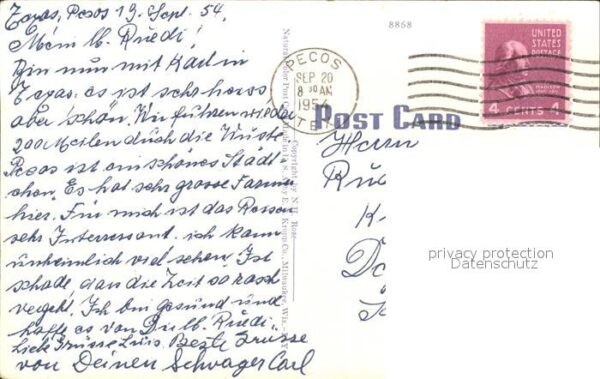 Texas, Pecos 19. Sept. 54.
Mein lb. Ruedi!
Bin nun mit Karl in
Texas. es ist sehr heiss
aber schön. Wir fuhren wieder
200 Meilen durch die Wüste
Pecos ist ein schönes Städt
chen. Es hat sehr grosse Farmen
hier. Für mich ist das
sehr Interressant. ich kann
unheimlich viel sehen. Ist
schade, dan die Zeit so rasch
vergeht. Ich bin gesund und
hoffe es von Dir lb. Ruedi.
Liebe Grüsse Luis. Beste Grüsse
von Deinen Schwager Carl
8868
PECOS
SEP 20
8 30 AM
1954
TEX
UNITED
STATES
POSTAGE
MADISON
4 CENTS 4
POST CARD
Herrn
privacy protection
Datenschutz
Copyright by N. H. Rose